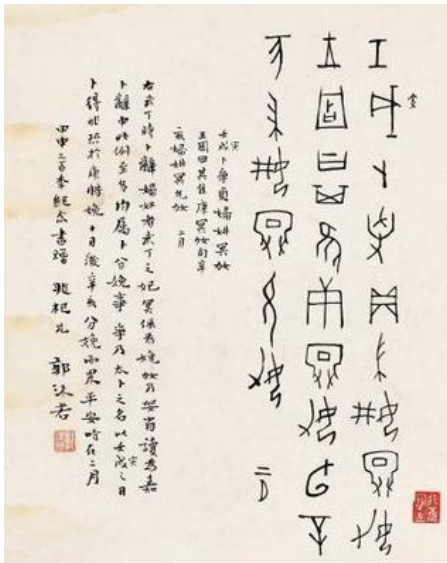 壬寅卜爭貞婦妌冥妨
王固曰其隹庚冥妨旬辛
亥婦妌冥允妨二月
壬戌寅卜爭貞婦妌冥妨
王固曰其隹庚冥妨旬辛
亥婦妌冥允妨 二月
右武丁時卜辭婦妌者武丁之妃冥係為娩妨乃當讀為嘉
卜辭中此例至多均屬卜分娩事爭乃太卜之名以壬戌寅之日
卜得此兆於庚時娩十日後辛亥分娩而果平安時在二月
甲申三百年紀念書贈杞兄 郭沫若